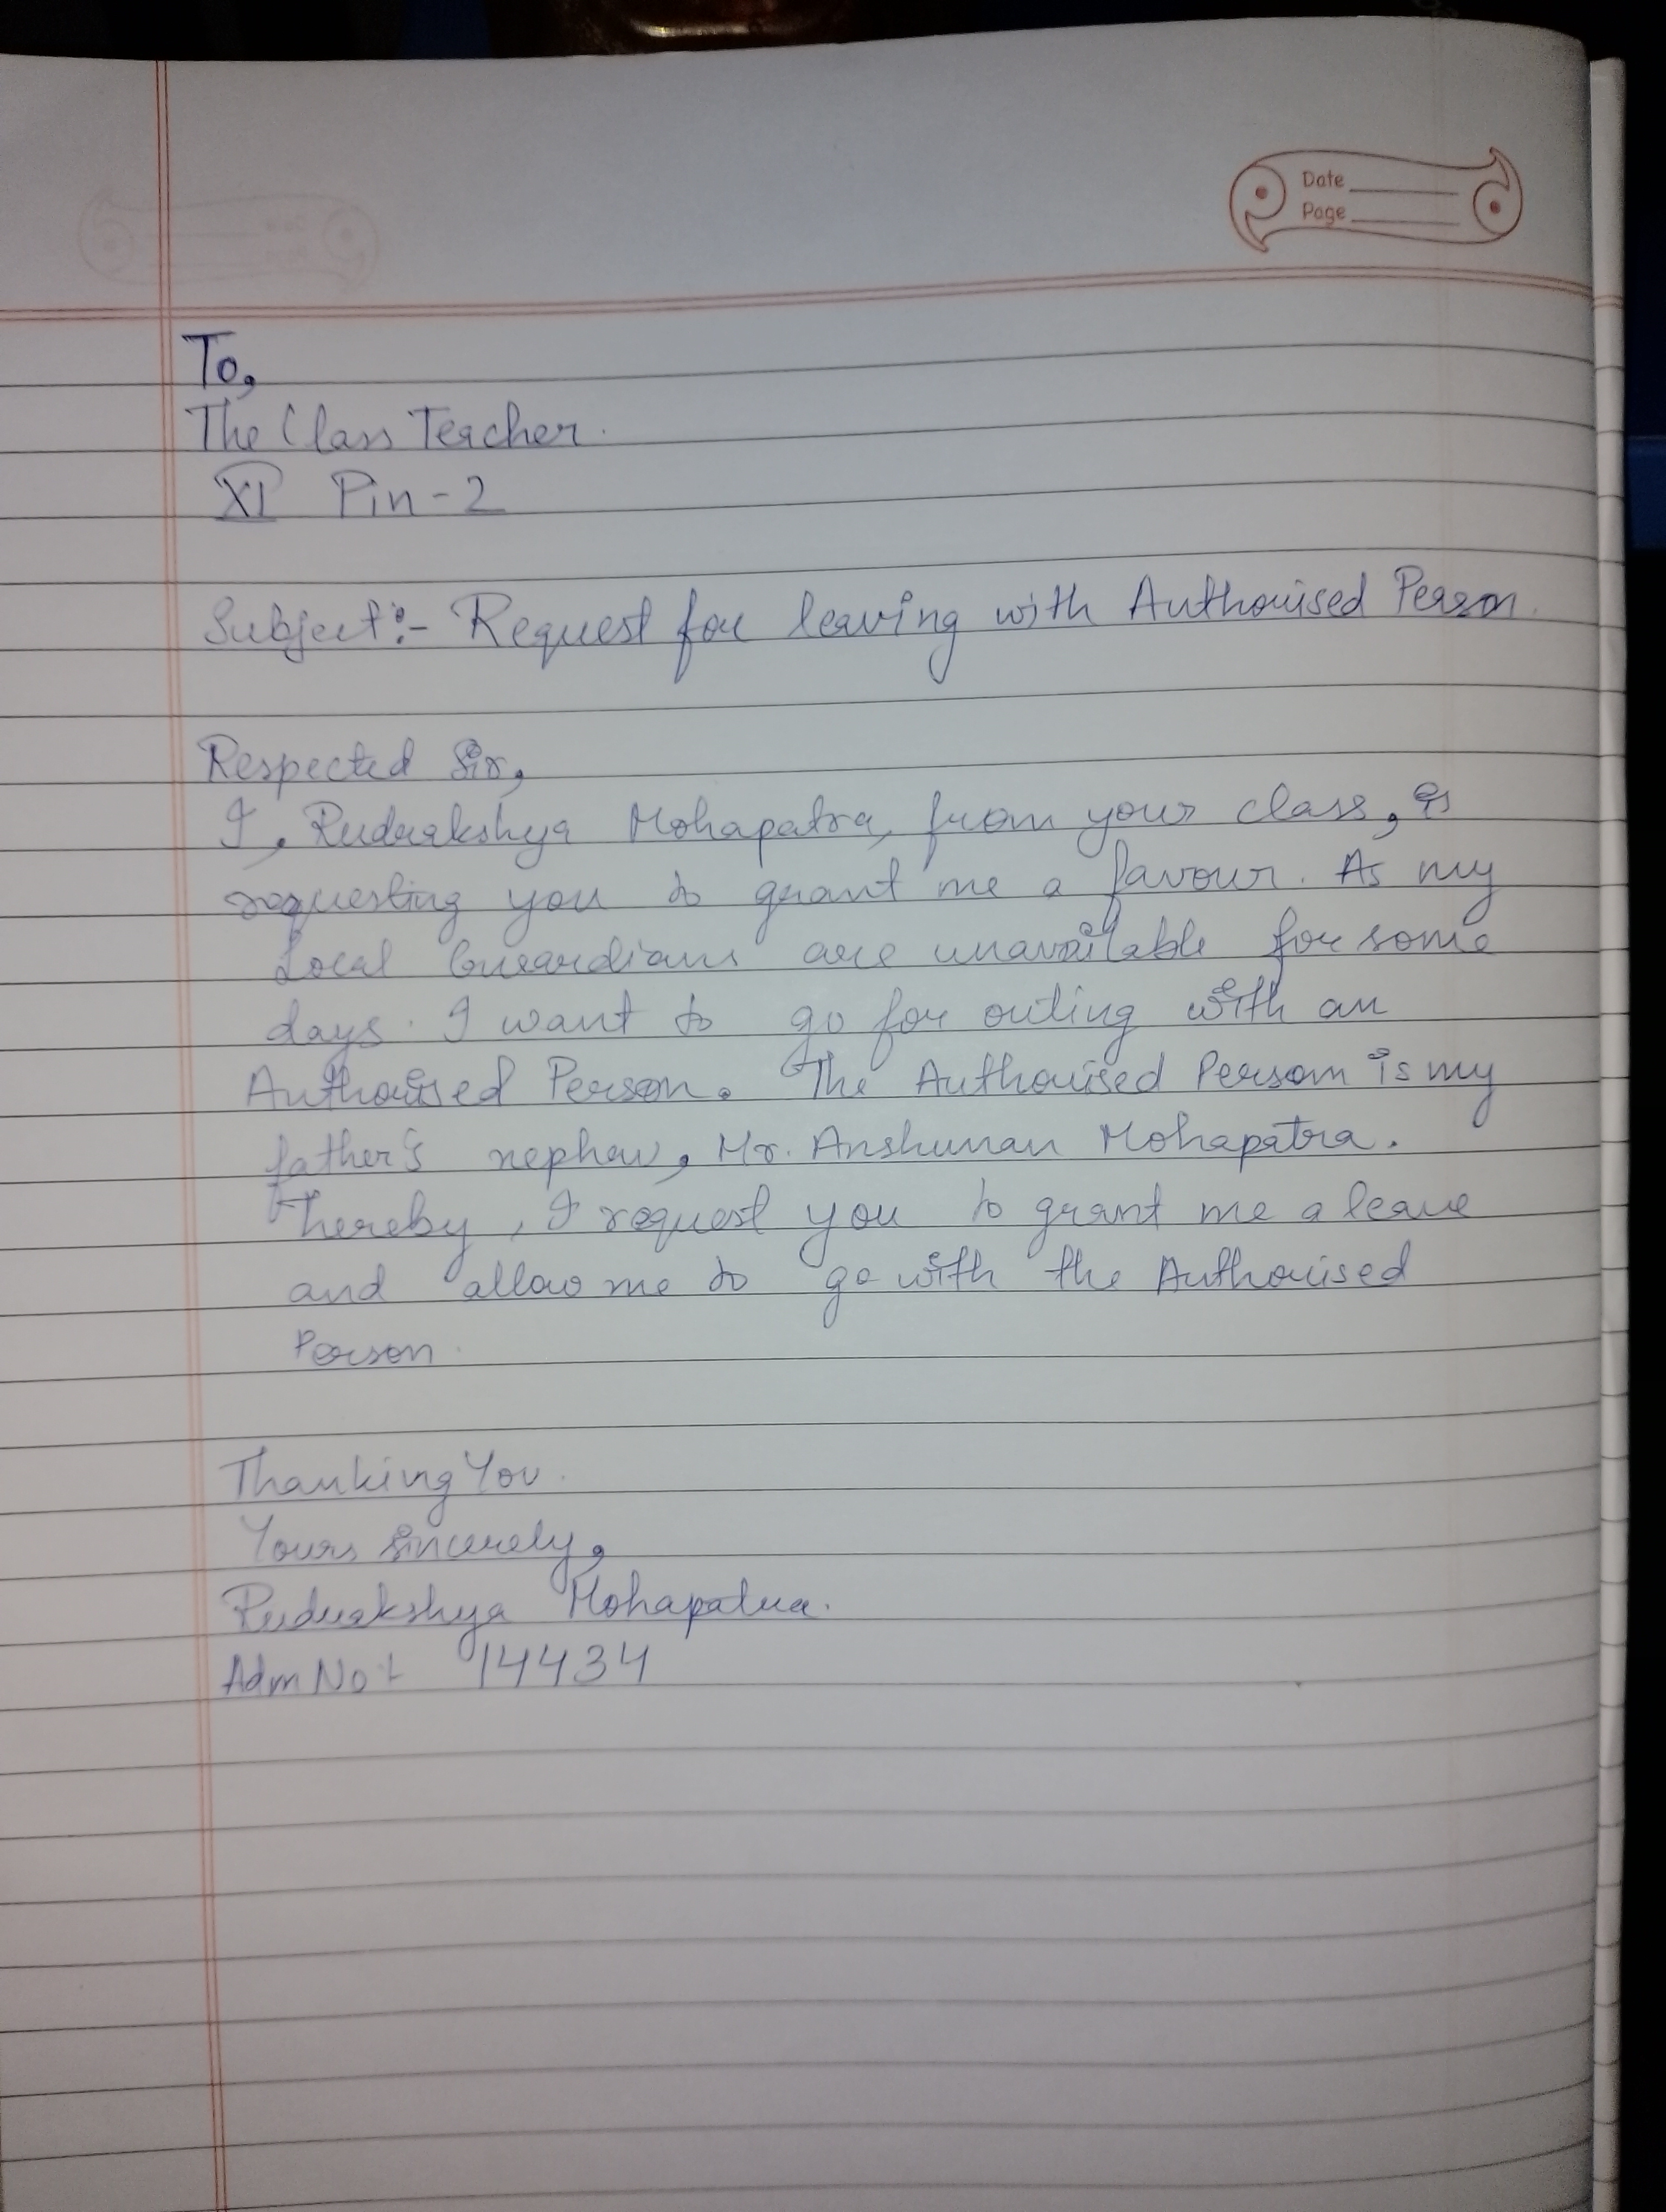 Date
Page
To,
The Class Teacher.
XI Pin-2
Subject:- Request for leaving with Authorised Person.
Respected Sir,
I, Rudrakshya Mohapatra, from your class, is
requesting you to grant me a favour. As my
Local Guardians are unavailable for some
days. I want to go for outing with an
Authorised Person. The Authorised Person is my
father's nephew, Mr. Anshuman Mohapatra.
Thereby, I request you to grant me a leave
and allow me to go with the Authorised
Person.
Thanking You.
Yours sincerely,
Rudrakshya Mohapatra.
Adm No:- 14434